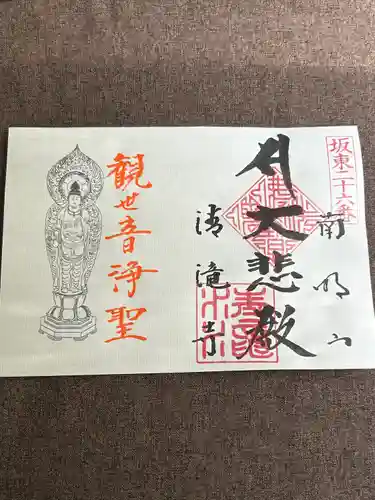 坂東二十六番
南明山
大悲殿
清滝寺
観世音浄聖